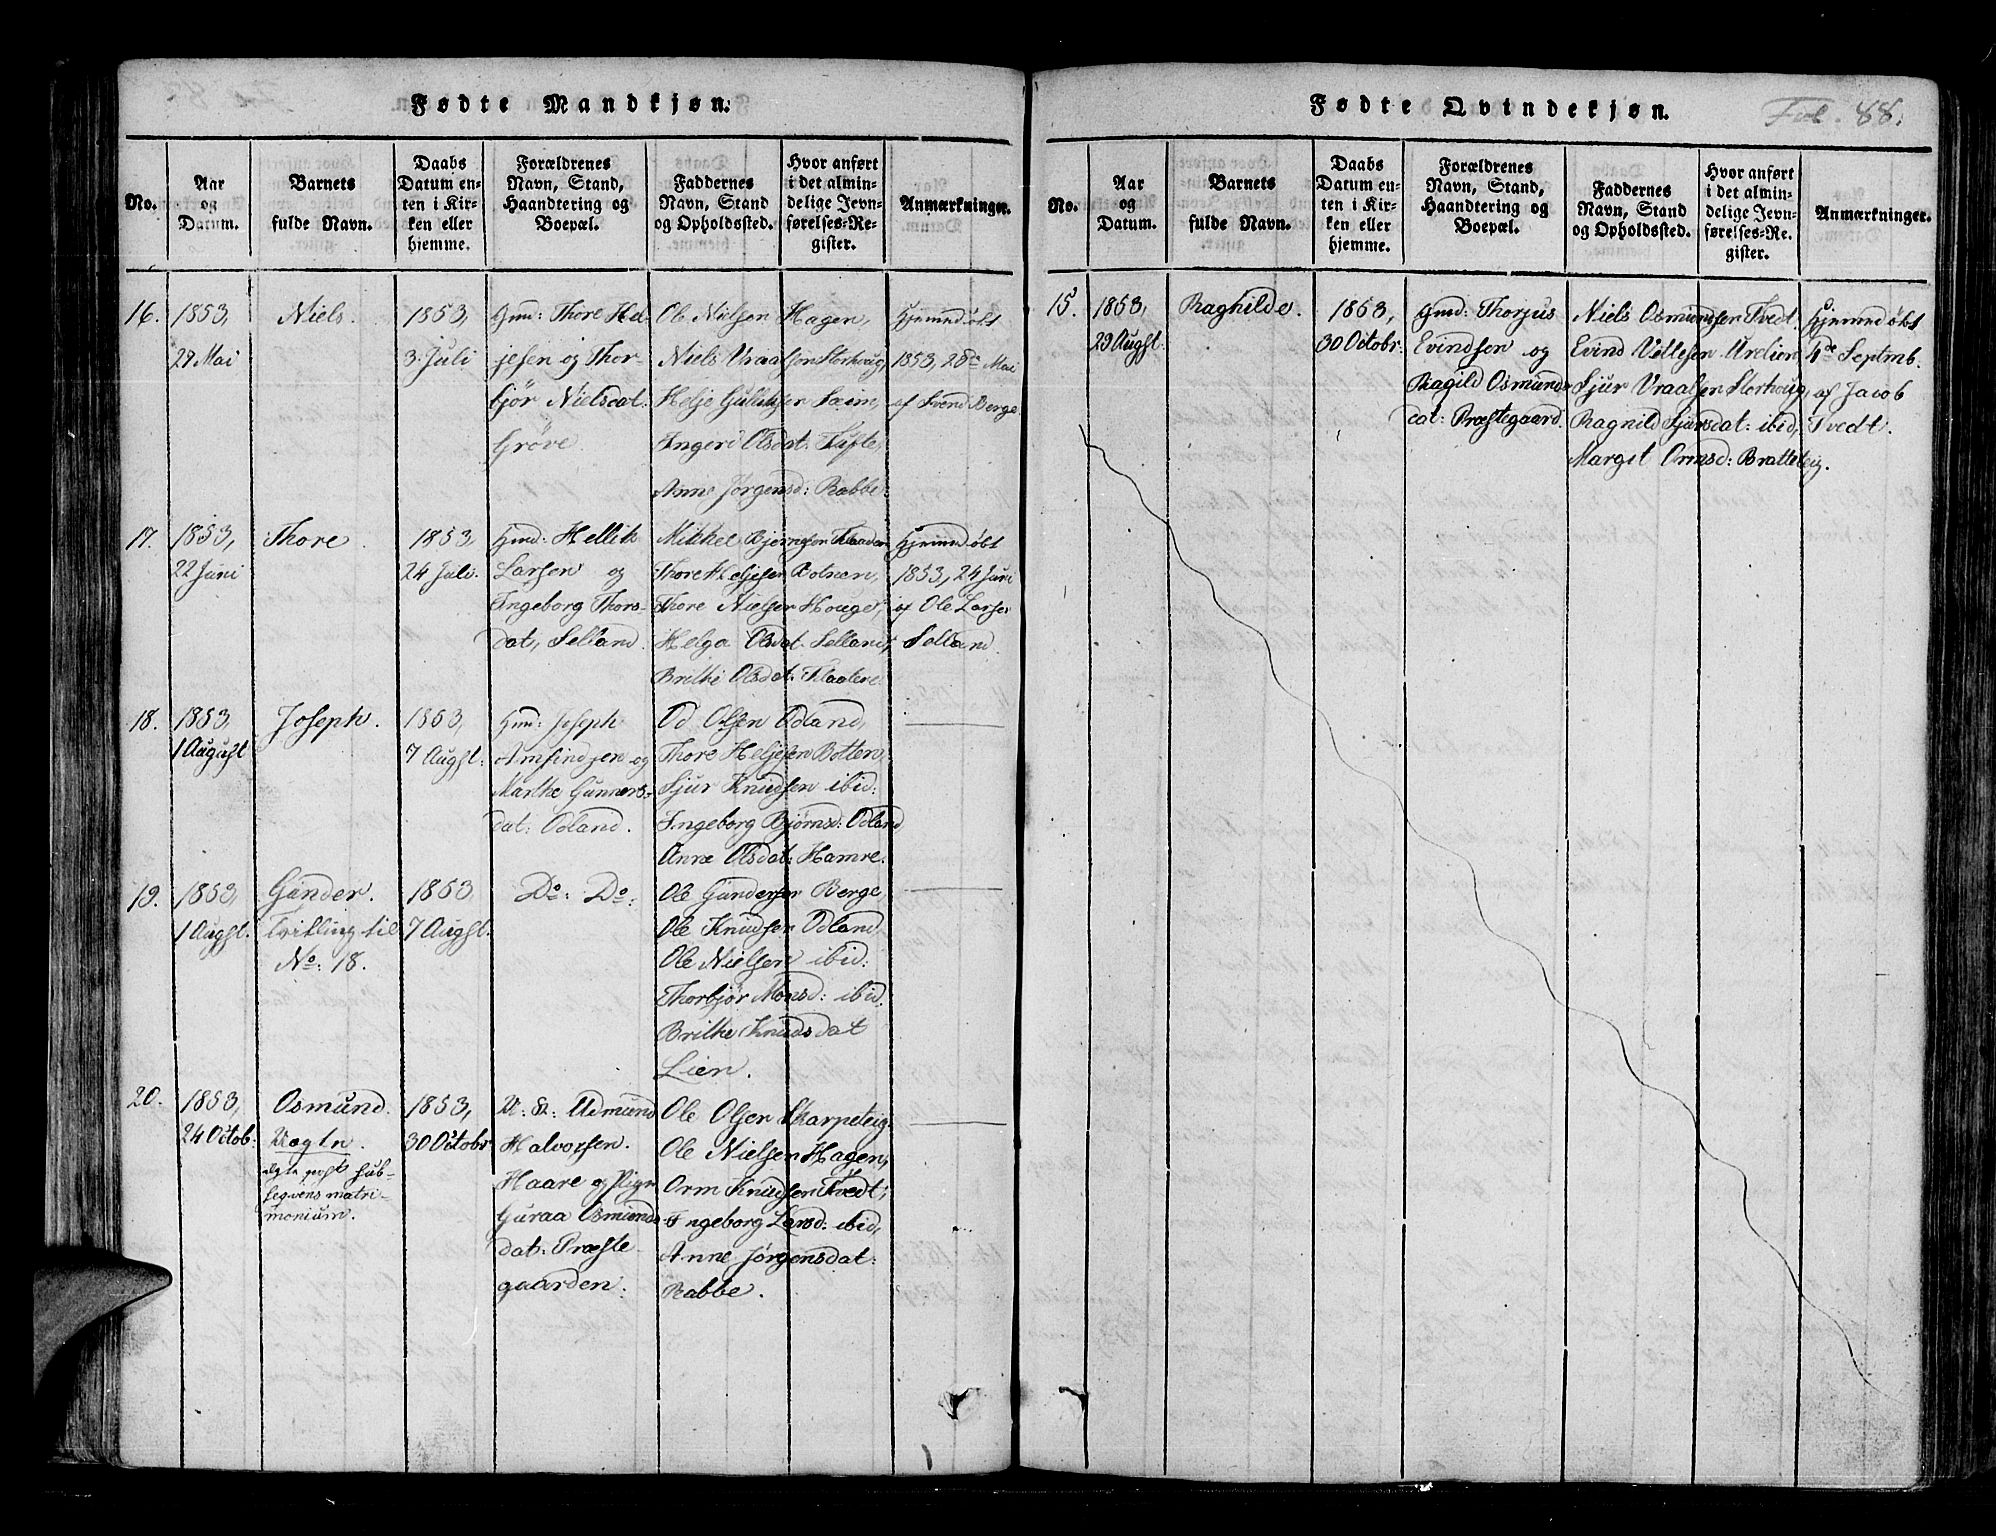 Fødte Mandkjøn.
No.
Aar
og
Datum.
Barnets
fulde Navn.
Daabs
Datum en-
ten i Kir-
ken eller
hjemme.
Forældrenes
Navn, Stand,
Haandtering og
Boepæl.
Faddernes
Navn, Stand
og Opholdssted.
Hvor anført
i det almin-
delige Jevn-
førelses-Re-
gister.
Anmærkninger.
16.
1853,
29 Mai
Niels.
1853,
3 Juli
Gmd: Thore Hel-
jesen og Thor-
bjør Nielsdat.
Grøve.
Ole Nielsen Hagen,
Niels Vraalsen Storhoug,
Helje Gulliksen Sæm,
Ingeri Olsdat: Tufte,
Anne Jørgensd: Rabbe.
Hjemmdøbt
1853, 28de Mai
af Svend Berge.
17.
1853,
22 Juni
Thore.
1853,
24 Juli.
Gmd: Hellik
Larsen og
Ingeborg Thors-
dat, Selland.
Mikkel Bjørnsen
Thore Heljesen Botnen,
Thore Nielsen Houge,
Helga Olsdat Selland,
Brithe Olsdat:
Hjemmdøbt
1853, 24 Juni
af Ole Larsen
Selland.
18.
1853
1 August
Joseph.
1853,
7 Augst:
Gmd: Joseph
Amsindsen og
Marthe Gunners-
dat: Odland.
Od Olsen Odland,
Thore Heljesen Botten,
Sjur Knudsen ibid:
Ingeborg Bjørnsd: Odland
Anne Olsdat: Hamre.
19.
1853,
1 Augst.
Gunder.
Tvilling til
No: 18.
1853
7 Augst.
Do: Do:
Ole Gundersen Berge
Ole Knudsen Odland
Ole Nielsen ibid:
Thorbjør Monsd: ibid:
Brithe Knudsdat
Lien.
20.
1853,
24 Octob:
Osmund.
Uægtn.
ægte post sub-
seqvens matri-
monium.
1853,
30 Octobr
U: K: Udmund
Halvorsen.
Haare og Pign
Guraa Osmunds-
dat: Præste-
gaarden.
Ole Olsen Skarpeteig
Ole Nielsen Hagen,
Orm Knudsen Tvedt,
Ingeborg Larsd: ibid,
Anne Jørgensdat:
Rabbe.
Fødte Qvindekjøn.
Fol. 88.
No.
Aar
og
Datum.
Barnets
fulde Navn.
Daabs
Datum en-
ten i Kir-
ken eller
hjemme.
Forældrenes
Navn, Stand,
Haandtering og
Boepæl.
Faddernes
Navn, Stand
og Opholdssted.
Hvor anført
i det almin-
delige Jevn-
førelses-Re-
gister.
Anmærkninger.
15.
1853,
29 Augst.
Raghilde.
1853,
30 Octobr:
Gmd: Thorjus
Evindsen og
Ragild Osmunds-
dat: Præstegaard.
Niels Osmundsen Tvedt,
Evind Vetlesen Urelien
Sjur Vraalsen Storhoug,
Ragnild Sjursdat: ibid,
Margit Ormsd: Bratteteig.
Hjemmdøbt
4de Septmb.
af Jacob
Tvedt.